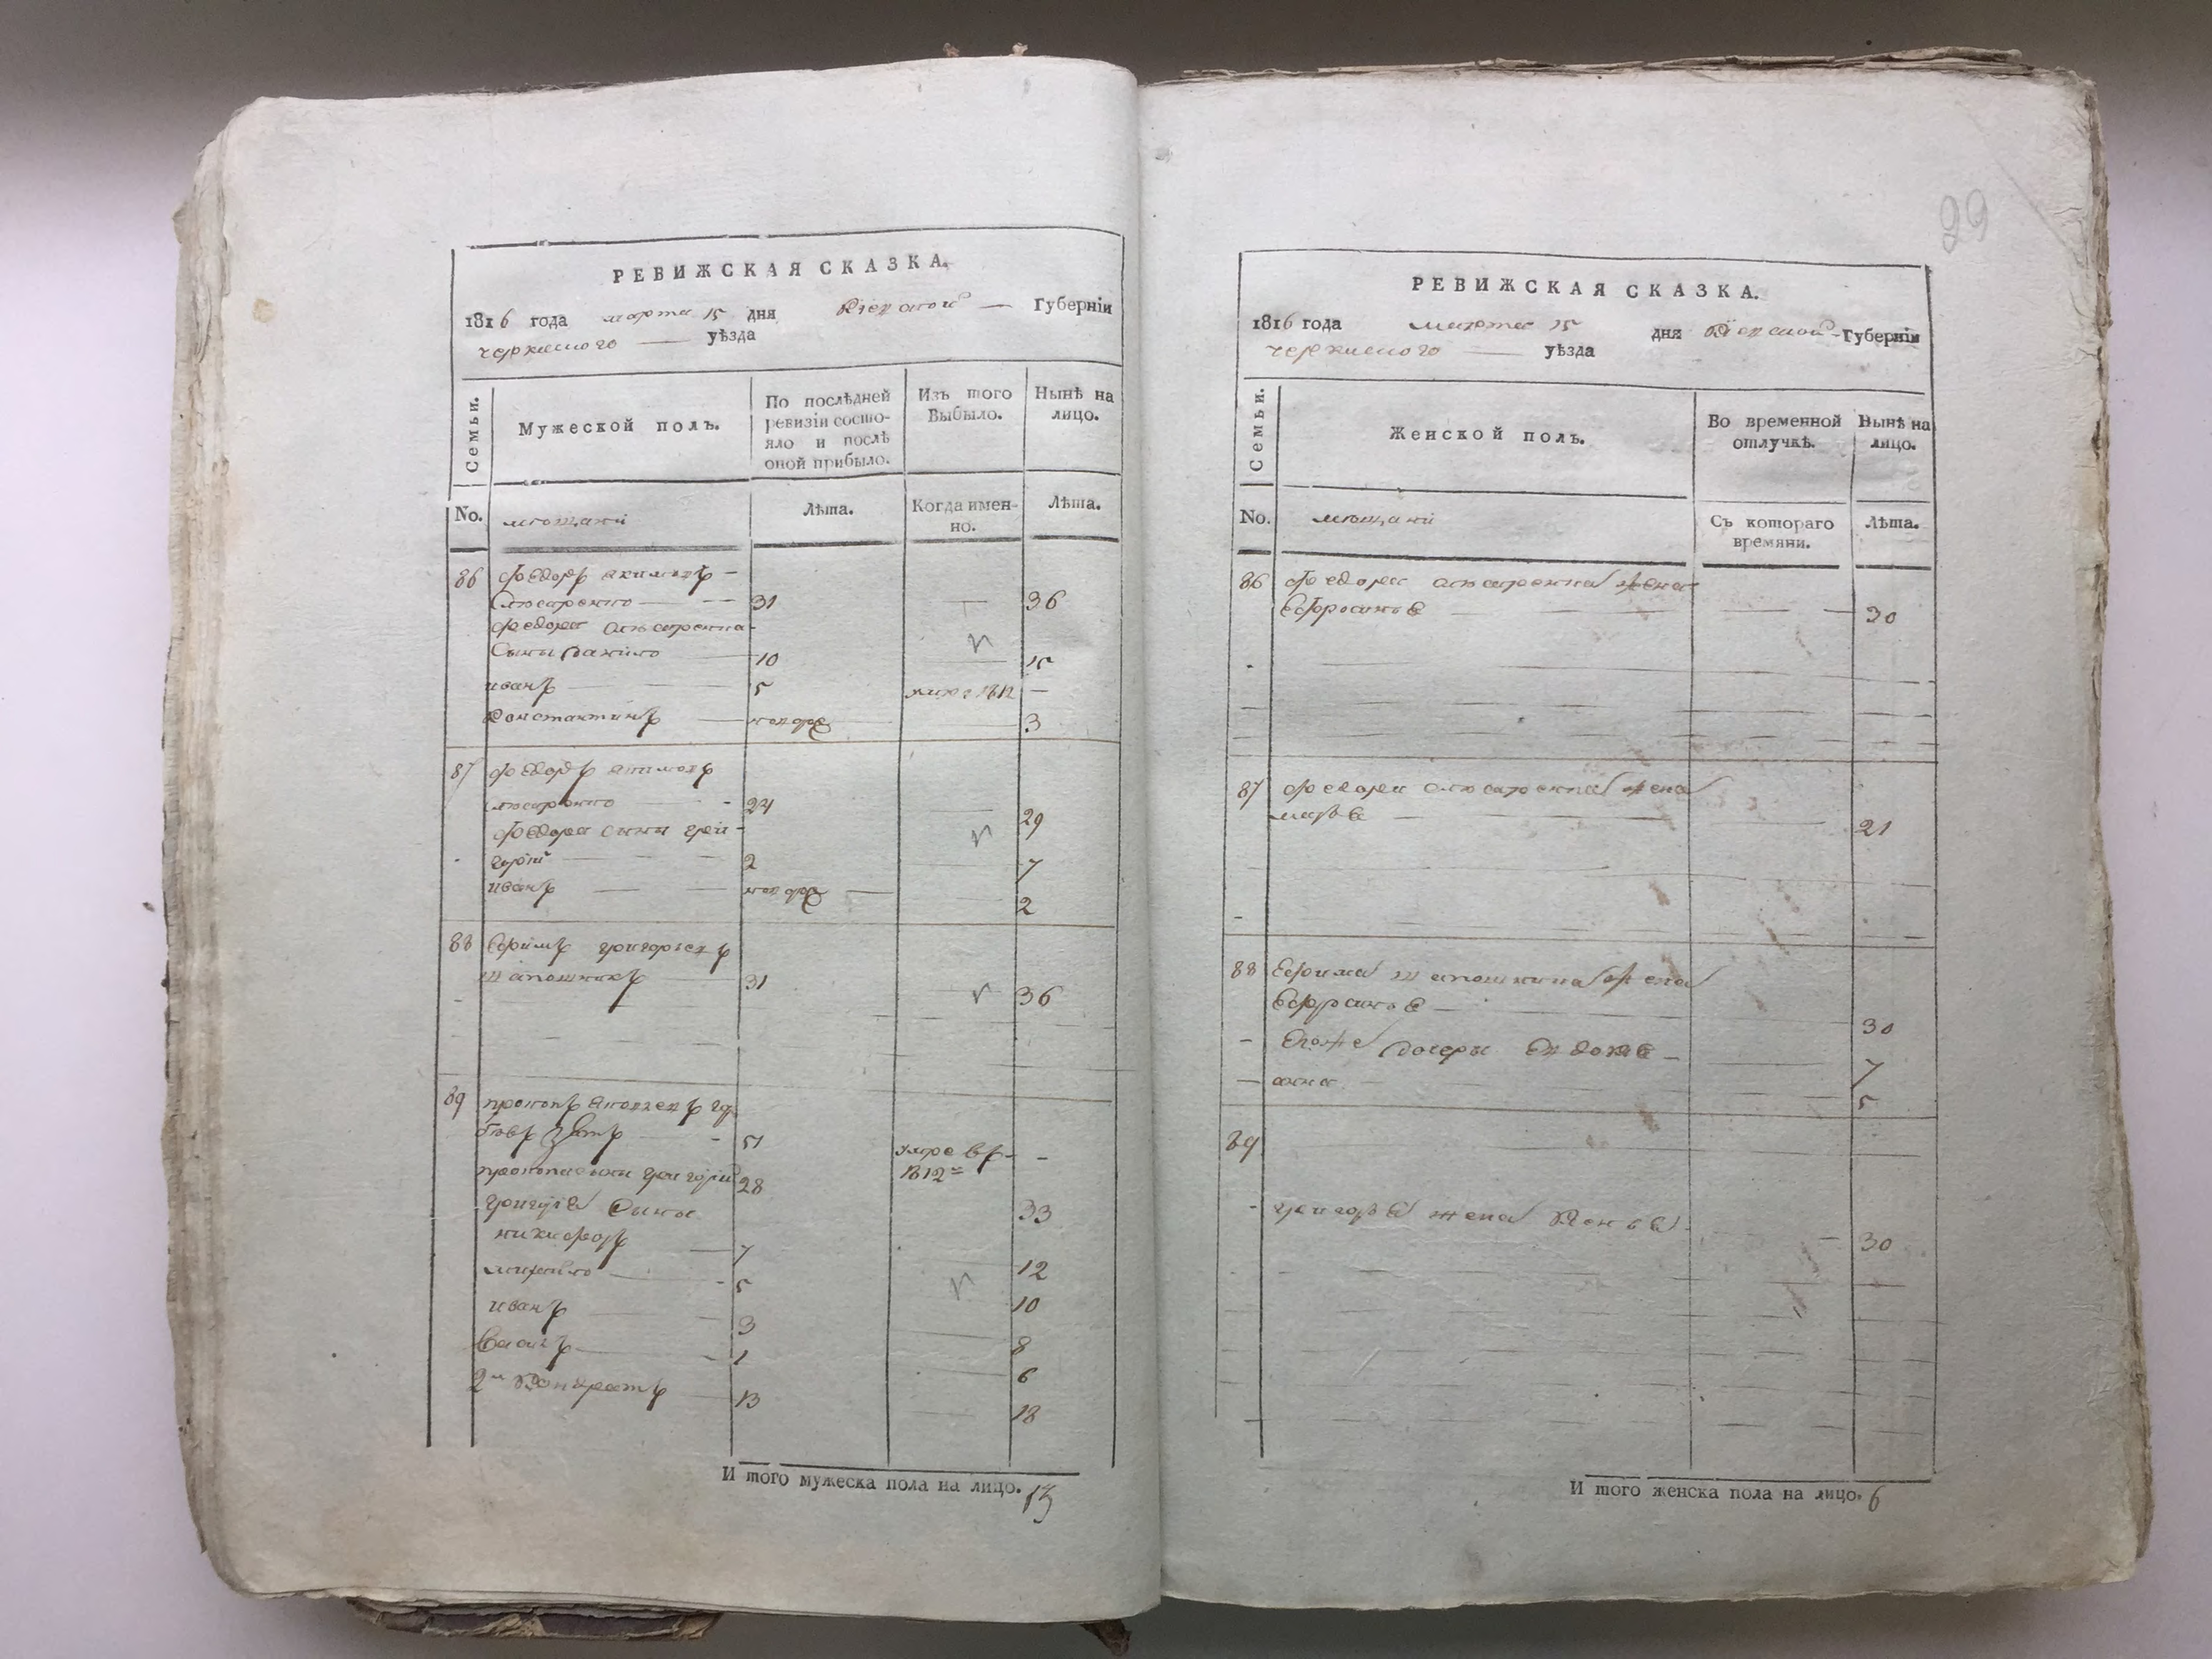 РЕВИЖСКАЯ СКАЗКА.
1816 года марта 15 дня Киевской Губерніи
черкаского уѣзда
Семьи.
Мужеской полъ.
По послѣдней ревизіи состо-
яло и послѣ
оной прибыло.
Изъ того
Выбыло.
Нынѣ на
лицо.
No.
мещани
Лѣта.
Когда имен-
но.
Лѣта.
86 федоръ якимовъ
слюсаренко 31 36
федора слюсаренка
сыны данило 10 15
иванъ 5 умре 1812
константинъ новоро 3
87 федоръ якимовъ
слюсаренко 24 29
федора сыны гри-
горій 2 7
иванъ новоро 2
88 Ефимъ григорьевъ
шапошникъ 31 36
89 прокопъ
зять 51 умре въ
1812
прокопа сыны григорій 28
григорія сыны 33
никифоръ 7
михайло 5 12
иванъ 3 10
Василь 1 8
6
2й Кондратъ 13
18
И того мужеска пола на лицо. 13
29
РЕВИЖСКАЯ СКАЗКА.
1816 года марта 15 дня Киевской Губерніи
черкаского уѣзда
Семьи.
Женской полъ.
Во временной
отлучкѣ.
Нынѣ на
лицо.
No.
мещани
Съ котораго
времяни.
Лѣта.
86 федора слюсаренка жена
Ефросинья 30
87 федора слюсаренка жена
марья 21
88 Ефима шапошника жена
Ефросинья 30
Егоже дочеры Евдокия 7
анна 5
89
григорья жена 30
И того женска пола на лицо. 6